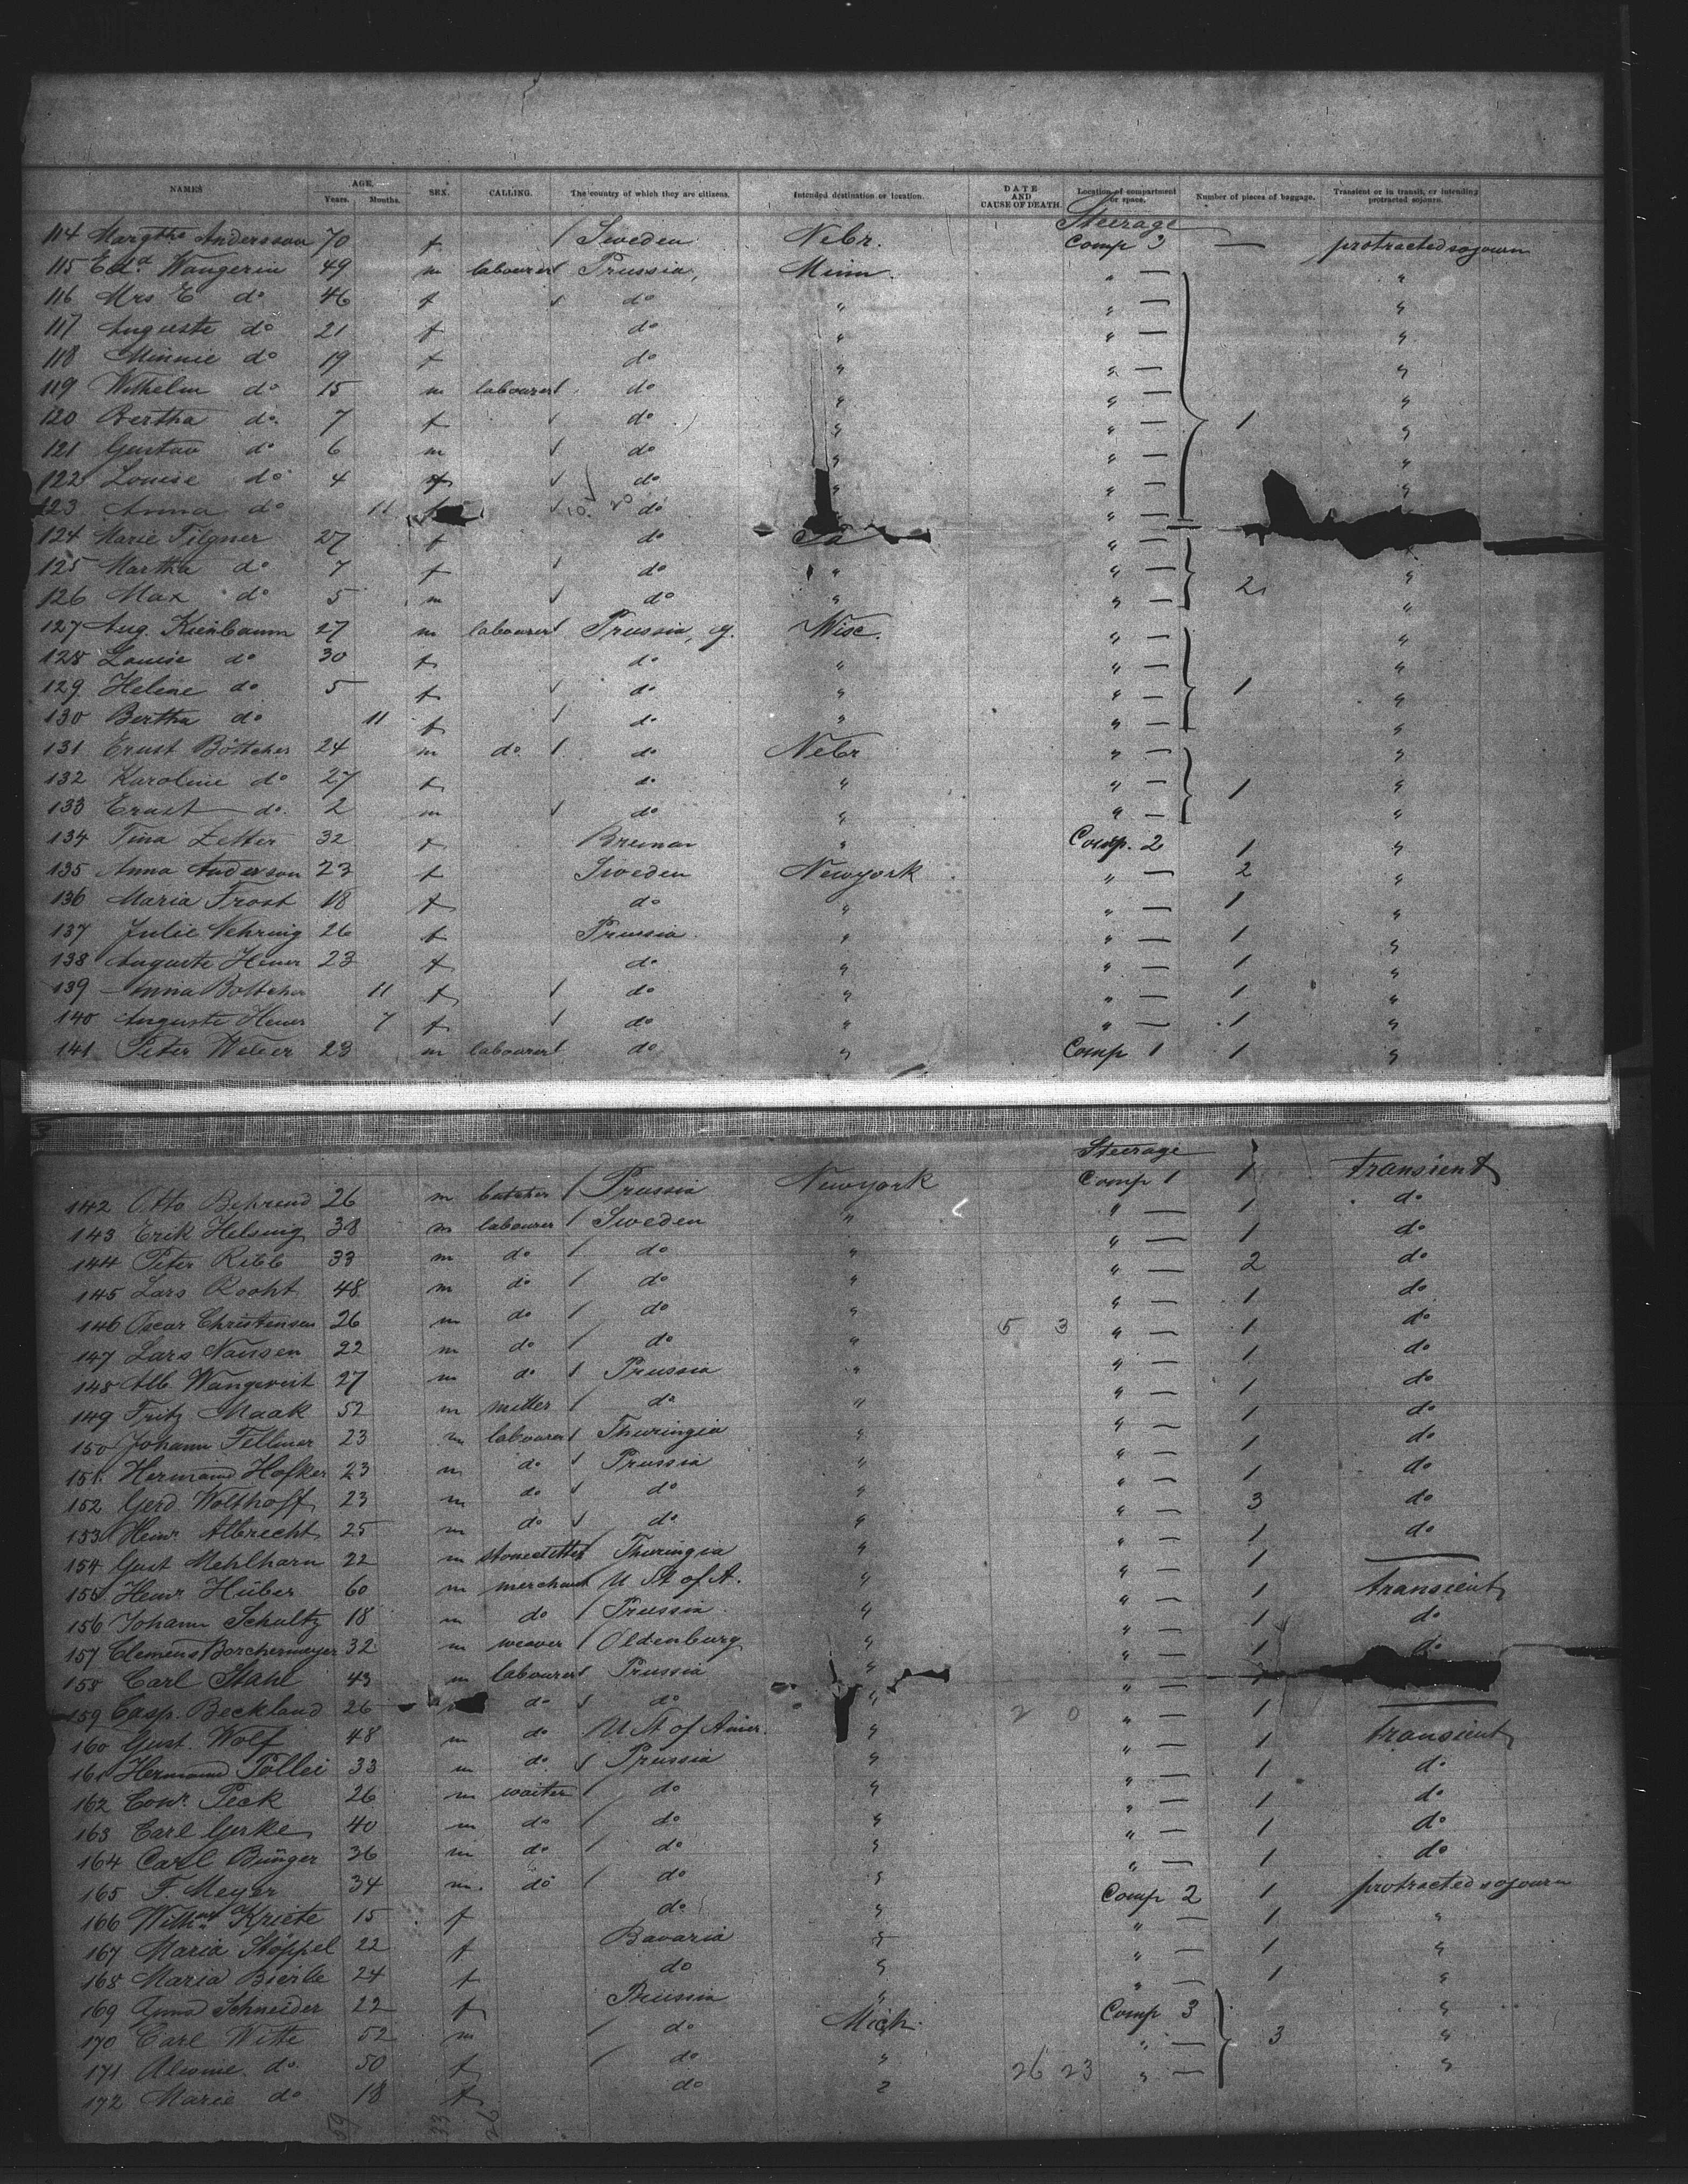 NAMES AGE. Years. Months. SEX. CALLING. The country of which they are citizens. Intended destination or location. DATE AND CAUSE OF DEATH. Location of compartment or space. Number of pieces of baggage. Transient or in transit, or intending protracted sojourn.
Steerage
114 Andersson 70 f / Sweden Nebr. Comp 3 — protracted sojourn
115 Wangerin 49 m labourer / Prussia, Minn. " — "
116 Mrs E do 46 f / do " " — "
117 Auguste do 21 f do " " — "
118 Minnie do 19 f do " " — "
119 Wilhelm do 15 m labourer / do " " — "
120 Bertha do. 7 f / do " " — 1 "
121 Gustav do 6 m / do " " — "
122 Louise do 4 f / do " " — "
123 Anna do 11 f / do " —
124 Marie Filgner 27 f do " —
125 Martha do 7 f / do " " — "
126 Max do 5 m / do " " — 2 "
127 Aug. Kienbaum 27 m labourer / Prussia, Wisc. " — "
128 Louise do 30 f do " " — "
129 Helene do 5 f / do " " — 1 "
130 Bertha do 11 f / do " " — "
131 Ernst Böttcher 24 m do / do Nebr " — "
132 Karoline do 27 f do " " — 1 "
133 Ernst do. 2 m / do " " — "
134 Tina Zetter 32 f Bremen " Comp. 2 1 "
135 Anna Anderson 23 f Sweden Newyork " — 2 "
136 Maria Frost 18 f do " " — 1 "
137 Julie Nehring 26 f Prussia " " — 1 "
138 Auguste Heuer 23 f do " " — 1 "
139 Anna Bottcher 11 f / do " " — 1 "
140 Auguste Heuer 7 f / do " " — 1 "
141 Peter Weber 23 m labourer / do " Comp 1 1 "
Steerage
142 Otto Behrend 26 m butcher / Prussia Newyork Comp 1 1 transient
143 Erik Helsing 38 m labourer / Sweden " " — 1 do
144 Peter Ribb 33 m do / do " " — 1 do
145 Lars 48 m do / do " " — 2 do
146 Oscar Christensen 26 m do / do " " — 1 do
5 3
147 Lars Nansen 22 m do / do " " — 1 do
148 Alb. 27 m do / Prussia " " — 1 do
149 Fritz Maak 52 m miller / do " " — 1 do
150 Johann Fellmer 23 m labourer / Thuringia " " — 1 do
151 Hermann Hofker 23 m do / Prussia " " — 1 do
152 Gerd Wolthoff 23 m do / do " " — 1 do
153 Heinr Albrecht 25 m do / do " " — 3 do
154 Gust Mehlharn 22 m Thuringia " " — 1 do
155 Heinr Hüber 60 m merchant U St of A. " " — 1 —
156 Johann Schultz 18 m do / Prussia " " — 1 transient
157 Clemens Borchermeyer 32 m weaver / Oldenburg " " — 1 do
158 Carl Stahl 43 m labourer / Prussia " " — 1 do
159 Casp. Beckland 26 m do / do " " —
2 0
160 Gust. Wolf 48 m do U St of Amer. " " — 1 —
161 Hermann Pollei 33 m do / Prussia " " — 1 transient
162 Conr. Peck 26 m waiter / do " " — 1 do
163 Carl Gerke 40 m do / do " " — 1 do
164 Carl Bünger 36 m do / do " " — 1 do
165 F. Meyer 34 m. do / do " " — 1 do
166 Kriete 15 f do " Comp 2 1 protracted sojourn
167 Maria Stöppel 22 f Bavaria " " — 1 "
168 Maria Bierle 24 f do " " — 1 "
169 Anna Schneider 22 f Prussia " " — 1 "
170 Carl Witte 52 m / do Mich. Comp 3 "
171 do. 50 f / do " " — 3 "
172 Marie do 18 f do " " — "
26 23
59 33 26